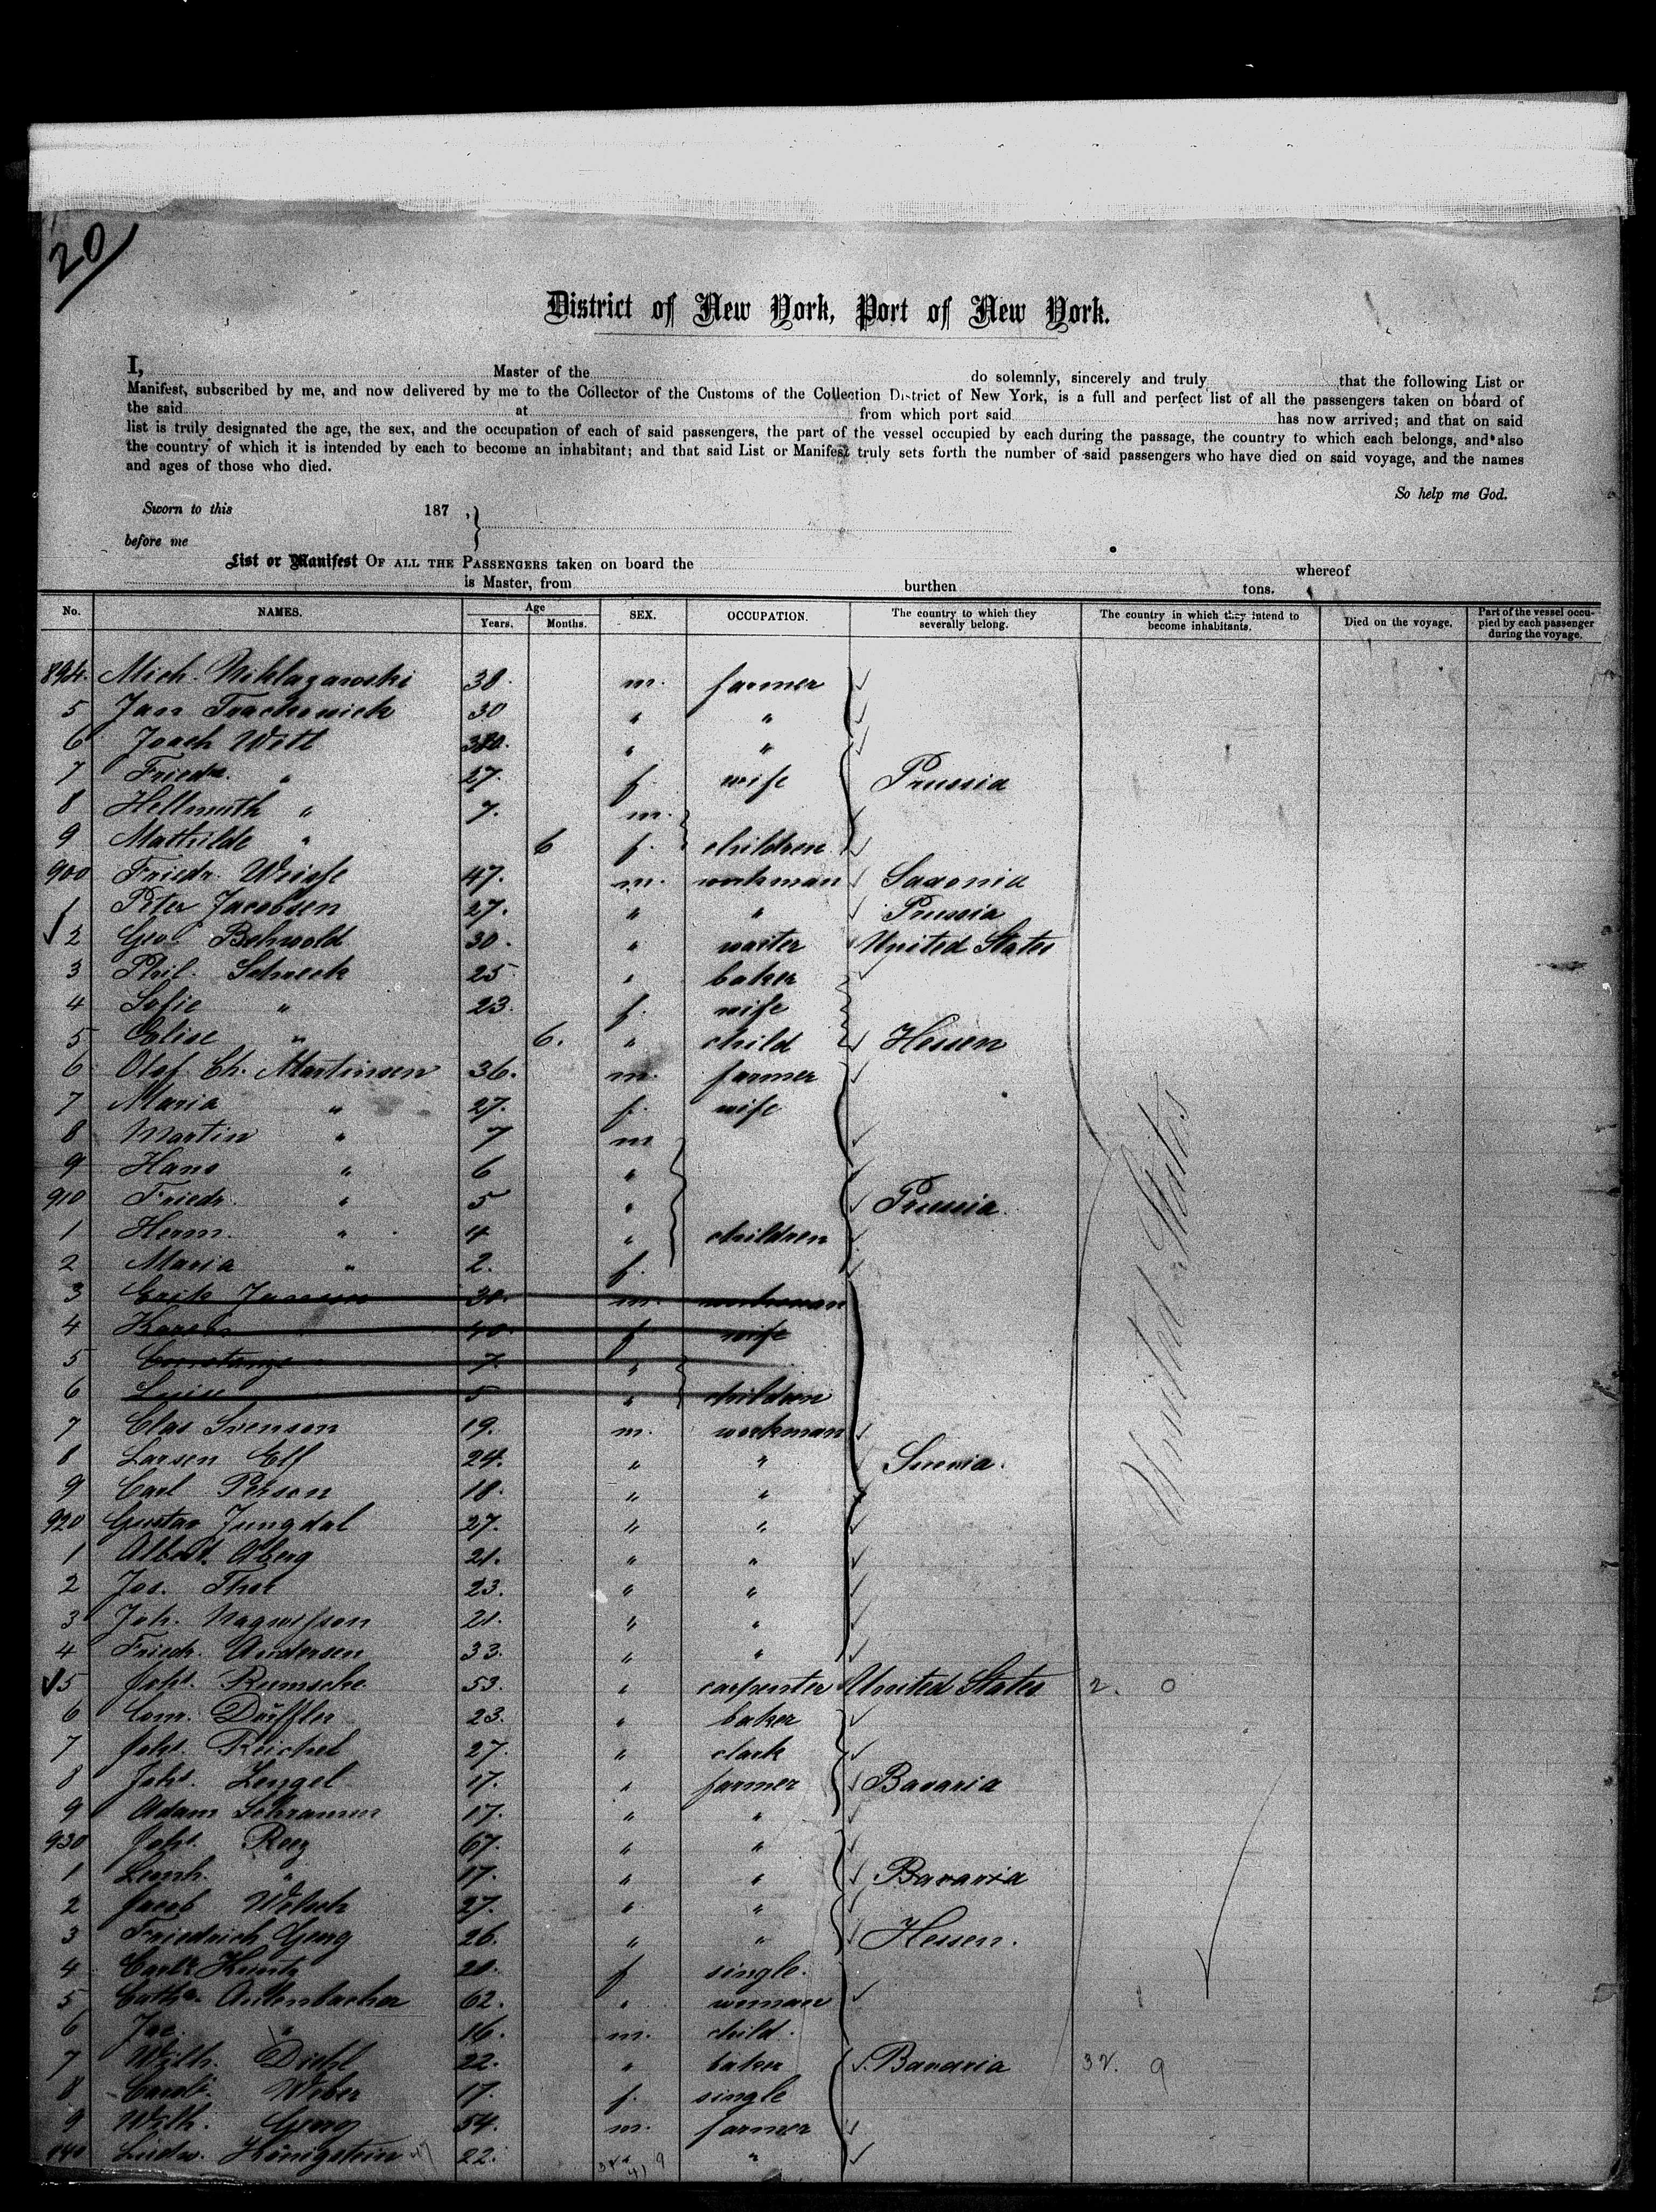 20
District of New York, Port of New York.
I, Master of the do solemnly, sincerely and truly that the following List or
Manifest, subscribed by me, and now delivered by me to the Collector of the Customs of the Collection District of New York, is a full and perfect list of all the passengers taken on board of
the said at from which port said has now arrived; and that on said
list is truly designated the age, the sex, and the occupation of each of said passengers, the part of the vessel occupied by each during the passage, the country to which each belongs, and also
the country of which it is intended by each to become an inhabitant; and that said List or Manifest truly sets forth the number of said passengers who have died on said voyage, and the names
and ages of those who died.
So help me God.
Sworn to this 187 ,
before me
List or Manifest OF ALL THE PASSENGERS taken on board the whereof
is Master, from burthen tons.
No. NAMES. Age Years. Months. SEX. OCCUPATION. The country to which they severally belong. The country in which they intend to become inhabitants. Died on the voyage. Part of the vessel occupied by each passenger during the voyage.
894. Mich. 38. m. farmer
5 Jan 30 " "
6 Joach Witt " "
7 Friedr. " 27. f. wife Prussia
8 Hellmuth " 7. m.
9 Mathilde " 6 f. children
900 Friedr. Weisse 47. m. workman Saxonia
1 Peter Jacobsen 27. " " Prussia
2 Geo. Behwold 30. " waiter United States
3 Phil. Schneck 25. " baker
4 Sofie " 23. f. wife
5 Elise " 6. " child Hessen
6 Olof Ch. Martinsen 36. m. farmer
7 Maria " 27. f. wife
8 Martin " 7 m
9 Hans " 6 "
910 Friedr. " 5 " Prussia
1 Herm. " 4 " children
2 Maria " 2. f.
3 Erik Jansen 30. m. workman
4 Karen 40. f wife
5 7. "
6 Luise 5 " children
7 Clas Svenson 19. m. workman
8 Larsen Elf 24. " " Suecia.
9 Carl Person 18. " "
920 Gustav Jungdal 27. " "
1 Albert Aberg 21. " "
2 Jos. Thor 23. " "
3 Joh. 21. " "
4 Friedr. Andersen 33. " "
5 Joh. 53. " carpenter United States 2. 0
6 Conr. Dörffler 23. " baker
7 Joh. Reichel 27. " clark
8 Joh. Zengel 17. " farmer Bavaria
9 Adam Schramm 17. " "
930 Joh. 67. " "
1 Leonh. " 17. " " Bavaria
2 Jacob Welsch 27. " "
3 Friedrich Georg 26. " " Hessen.
4 Kuntz f single.
5 Cath. Autenbacher 62. " woman
6 Jac. " 16. m. child.
7 Wilh. Diehl 22. " baker Bavaria 32. 9
8 Carol. Weber 17. f. single
9 Wilh. Georg 54. m. farmer
940 Ludw. Königstein 22. "
United States